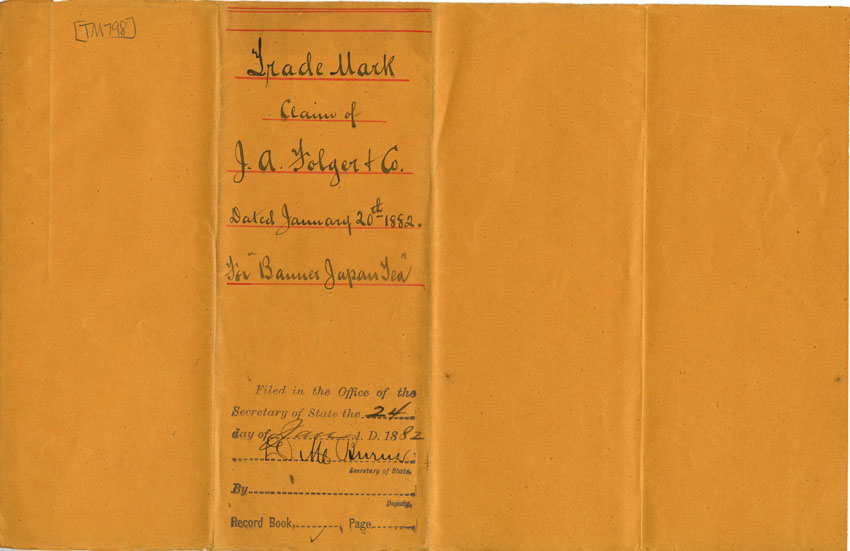 [TM798]
Trade Mark
Claim of
J. A. Folger & Co.
Dated January 20th 1882.
For "Banner Japan Tea"
Filed in the Office of the
Secretary of State the 24
day of Jan A. D. 1882
Secretary of State.
By
Deputy.
Record Book, , Page